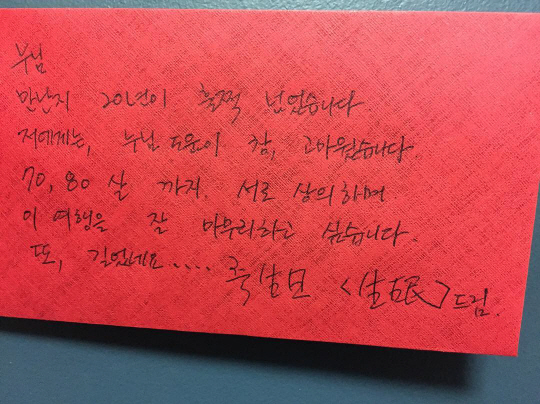 누님
만난지 20년이 훌쩍 넘었습니다
저에게는, 누님 도움이 참, 고마웠습니다.
70, 80 살 까지. 서로 상의하며
이 여행을 잘 마무리하고 싶습니다.
또, 길었네요.... 祝生日 <生民>드림.